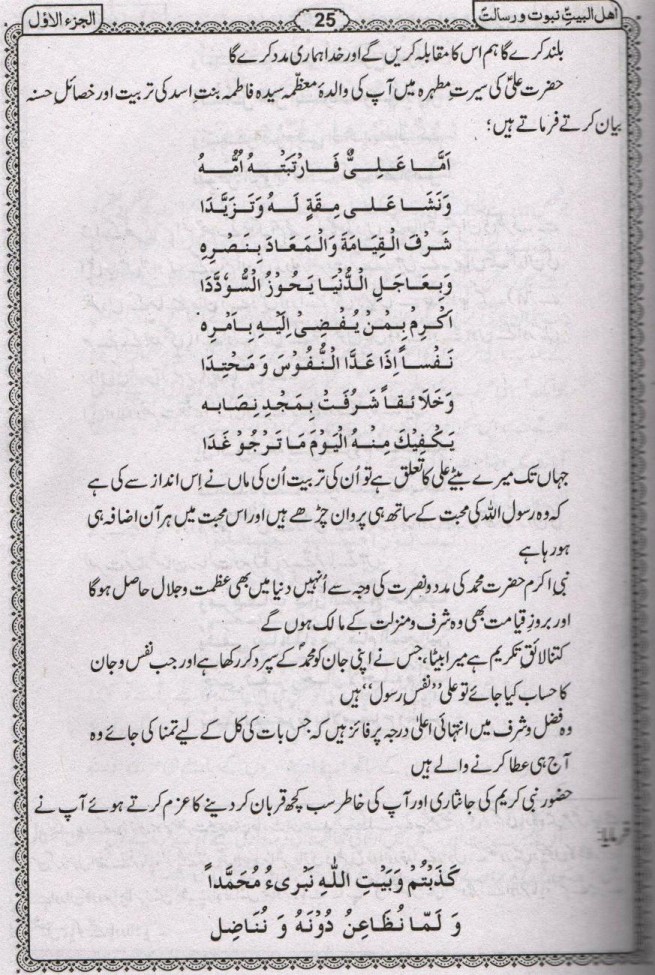 اھل البیتؑ نبوت و رسالت
25
الجزء الاوّل
بلند کرے گا ہم اس کا مقابلہ کریں گے اور خدا ہماری مدد کرے گا
حضرت علیؑ کی سیرتِ مطہرہ میں آپ کی والدۂ معظّمہ سیدہ فاطمہ بنتِ اسد کی تربیت اور خصائلِ حسنہ
بیان کرتے فرماتے ہیں؛
اَمَّا عَلِیٌّ فَارْتَبَتْهُ اُمُّهُ
وَنَشَا عَلٰی مِقَةٍ لَهُ وَتَزَیَّدَا
شَرُفَ الْقِیَامَةَ وَالْمَعَادَ بِنَصْرِهِ
وَبِعَاجِلِ الدُّنْیَا یَحُوْزُ السُّوْدَدَا
اَکْرِمْ بِمَنْ یُفْضِیْ اِلَیْهِ بِاَمْرِهِ
نَفْساً اِذَا عَدَّا النُّفُوْسَ وَمَحْتِدَا
وَخَلَائِقاً شَرُفَتْ بِمَجْدِ نِصَابِهِ
یَکْفِیْكَ مِنْهُ الْیَوْمَ مَا تَرْجُوْ غَدَا
جہاں تک میرے بیٹے علی کا تعلق ہے تو اُن کی تربیت اُن کی ماں نے اِس انداز سے کی ہے
کہ وہ رسول اللہ کی محبت کے ساتھ ہی پروان چڑھے ہیں اور اس محبت میں ہر آن اضافہ ہی
ہو رہا ہے
نبی اکرم حضرت محمد کی مدد و نصرت کی وجہ سے اُنہیں دنیا میں بھی عظمت و جلال حاصل ہوگا
اور بروزِ قیامت بھی وہ شرف و منزلت کے مالک ہوں گے
کتنا لائق تکریم ہے میرا بیٹا، جس نے اپنی جان کو محمدؐ کے سپرد کر رکھا ہے اور جب نفس و جان
کا حساب کیا جائے تو علی ’’نفسِ رسول‘‘ ہیں
وہ فضل و شرف میں انتہائی اعلیٰ درجہ پر فائز ہیں کہ جس بات کی کل کے لیے تمنا کی جائے وہ
آج ہی عطا کرنے والے ہیں
حضور نبی کریم کی جانثاری اور آپ کی خاطر سب کچھ قربان کر دینے کا عزم کرتے ہوئے آپ نے
فرمایا؛
کَذَبْتُمْ وَبَیْتِ اللّٰهِ نَبْرِیءُ مُحَمَّداً
وَ لَمَّا نُطَاعِنْ دُوْنَهُ وَ نُنَاضِل